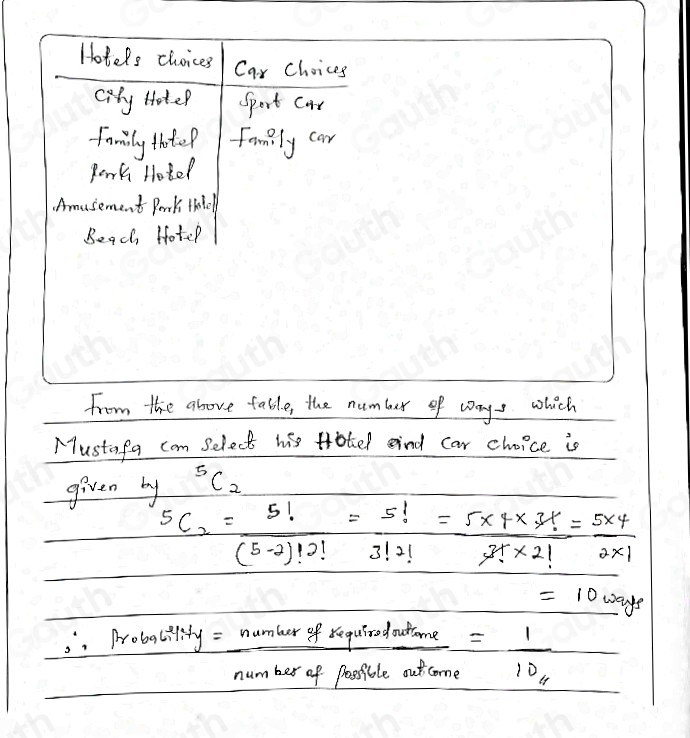 Hotels choices | Car Choices
City Hotel | Sport Car
Family Hotel | Family car
Park Hotel
Amusement Park Hotel
Beach Hotel
From the above table, the number of ways which
Mustafa can Select his Hotel and Car choice is
given by ⁵C₂
⁵C₂ = 5!/(5-2)!2! = 5!/3!2! = 5×4×3!/3!×2! = 5×4/2×1
= 10 ways
∴ Probability = number of required outcome/number of possible outcome = 1/10,,